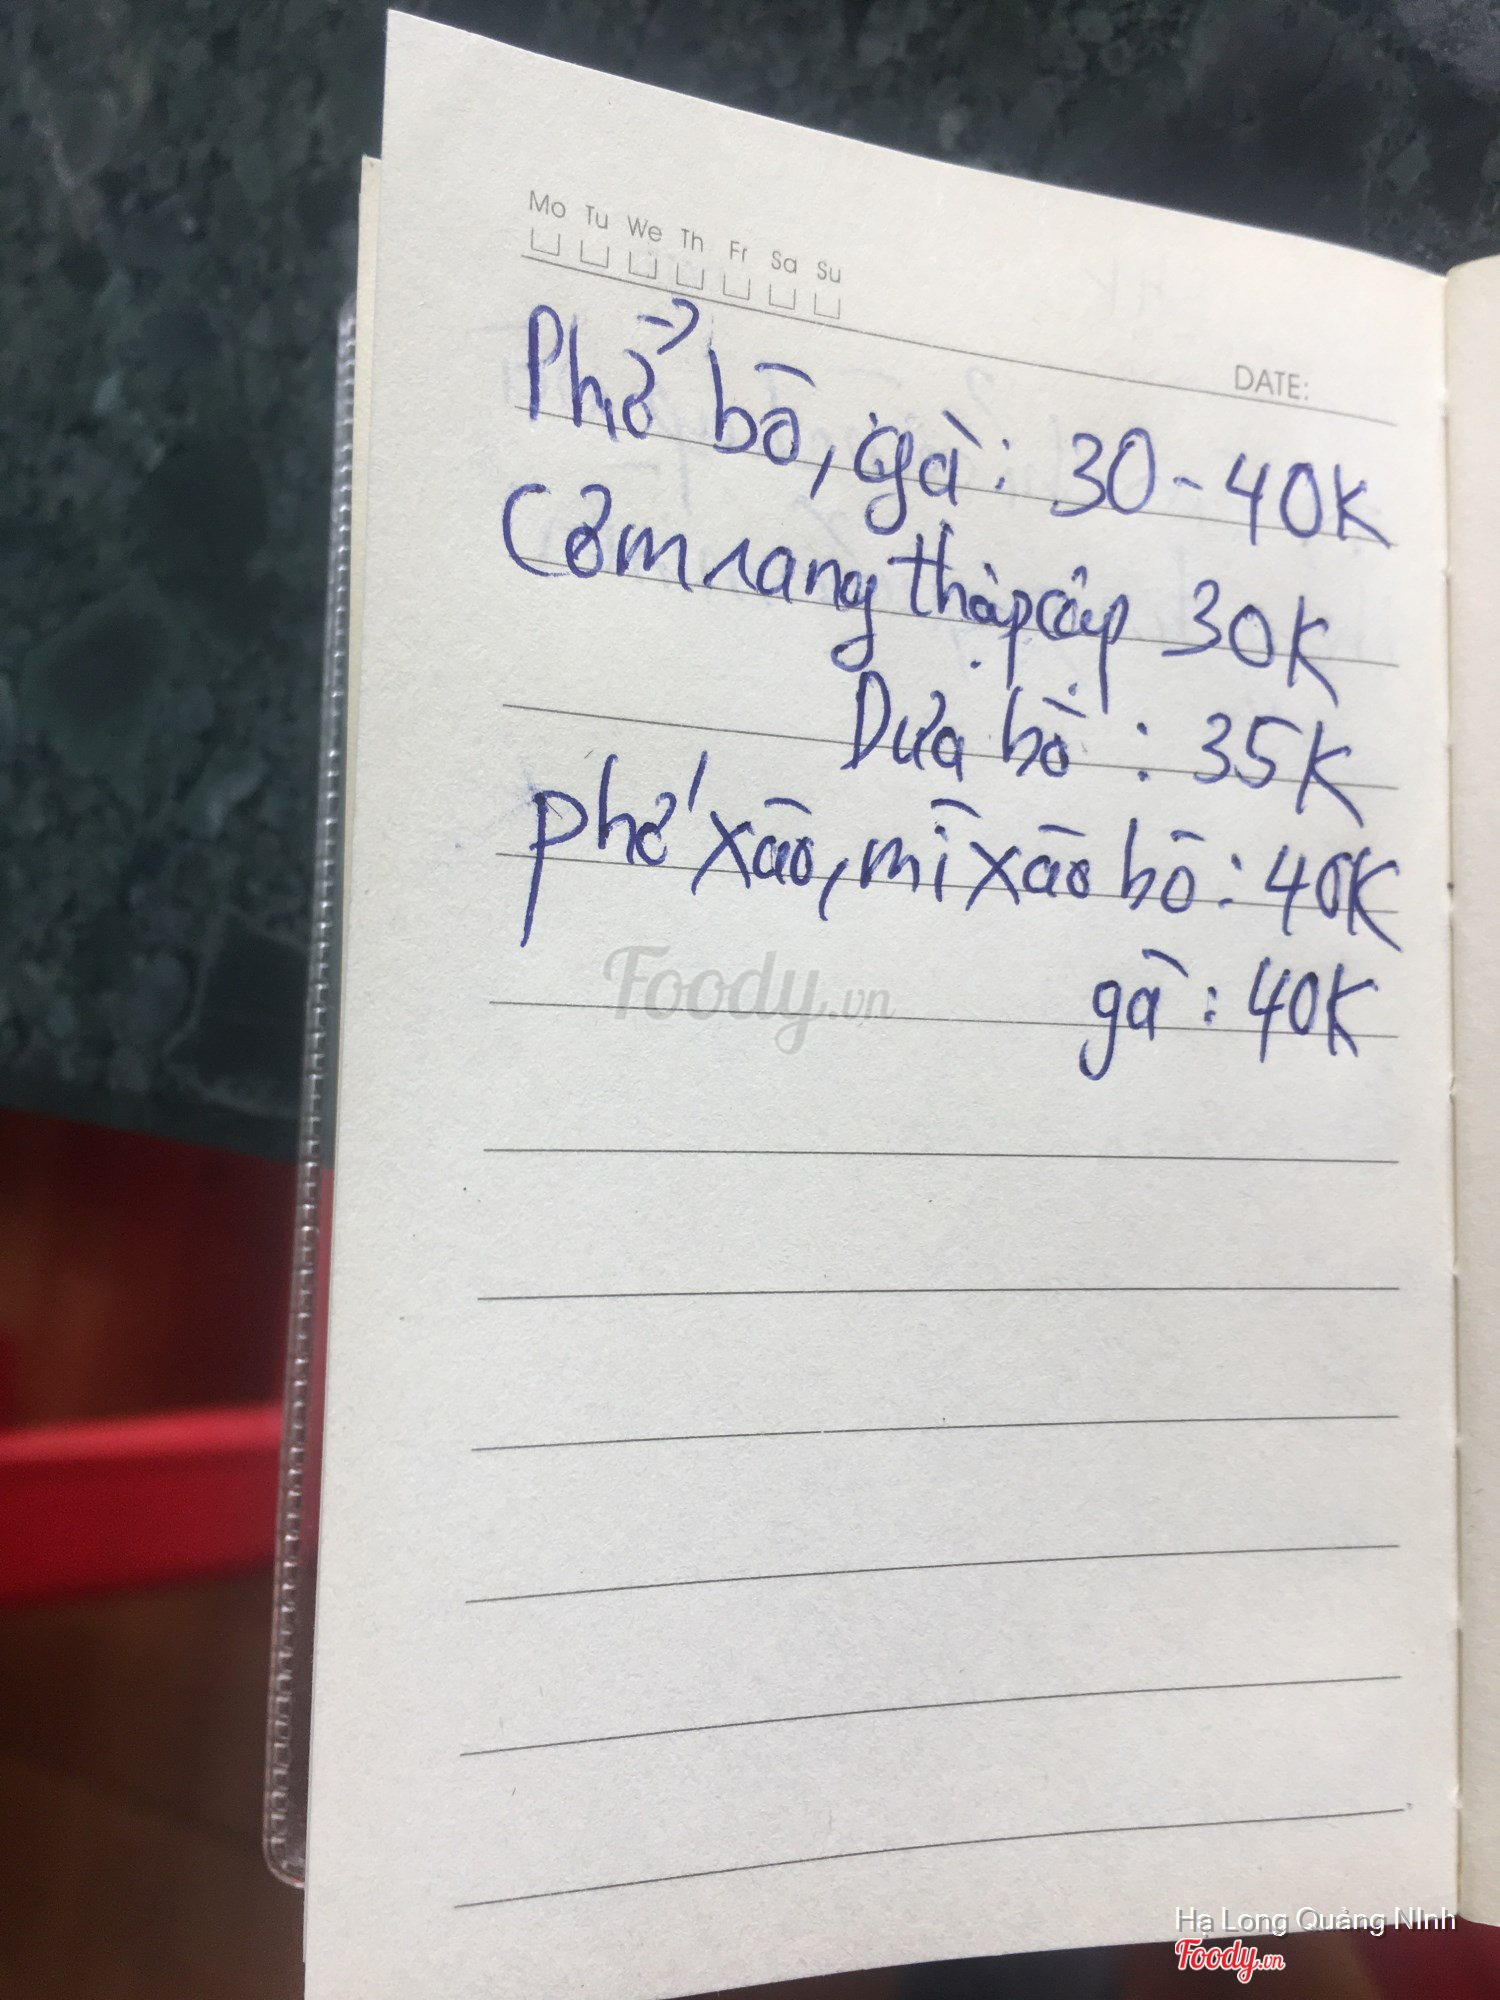 Mo Tu We Th Fr Sa Su
DATE:
Phở bò, gà: 30-40K
Cơm rang thập cập 30K
Dưa bò: 35K
phở xào, mì xào bò: 40K
gà: 40K
Foody.vn
Hạ Long Quảng NInh
Foody.vn